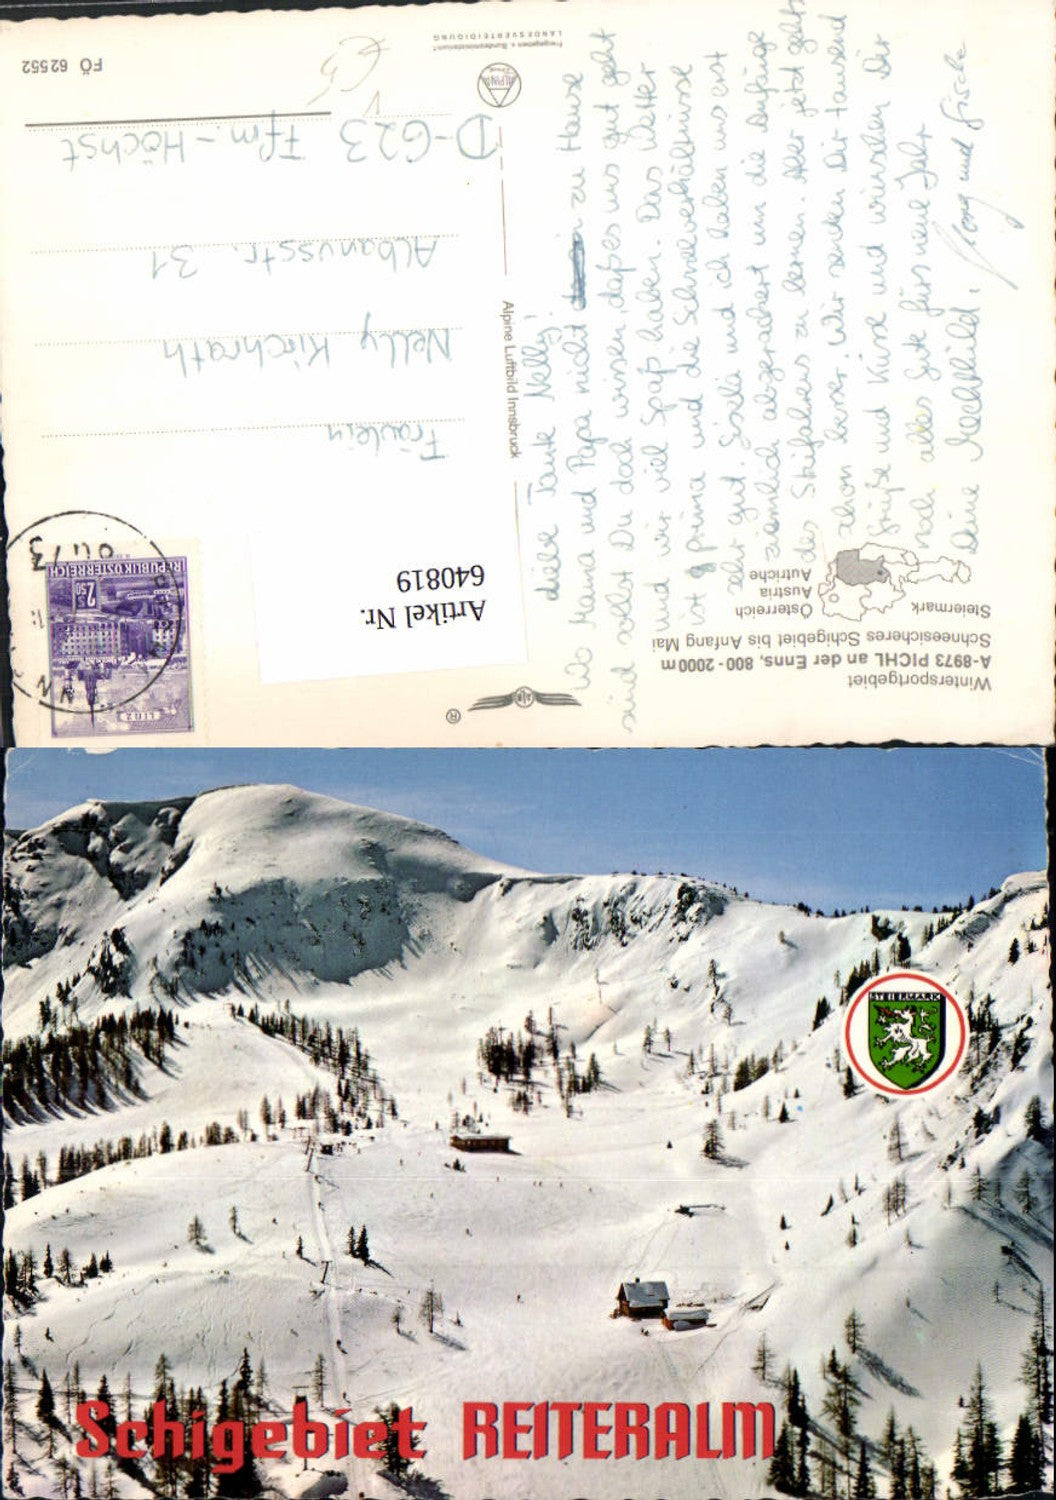 Wintersportgebiet
A-8973 PICHL an der Enns, 800 - 2000 m
Schneesicheres Schigebiet bis Anfang Mai
Steiermark
Österreich
Austria
Autriche
®
Artikel Nr.
640819
LINZ
S 2.50
REPUBLIK ÖSTERREICH
Liebe Tante Nelly!
Wo Mama und Papa nicht zu Hause
sind sollst Du doch wissen, daß es uns gut geht
und wir viel Spaß haben. Das Wetter
ist prima und die Schneeverhältnisse
sehr gut. Gisela und ich haben uns erst
ziemlich abgerackert um die Anfänge
des Skifahrens zu lernen. Aber jetzt gehts
schon besser. Wir senden Dir tausend
Grüße und Küsse und wünschen Dir
noch alles Gute fürs neue Jahr
Deine Mechthild, und Gisela
Alpine Luftbild Innsbruck
Fräulein
Nelly Kirchrath
Albanusstr. 31
D-623 Ffm.-Höchst
ALPINE
Freigegeben v. Bundesministerium f.
LANDESVERTEIDIGUNG
FÖ 62552
STEIERMARK
Schigebiet REITERALM